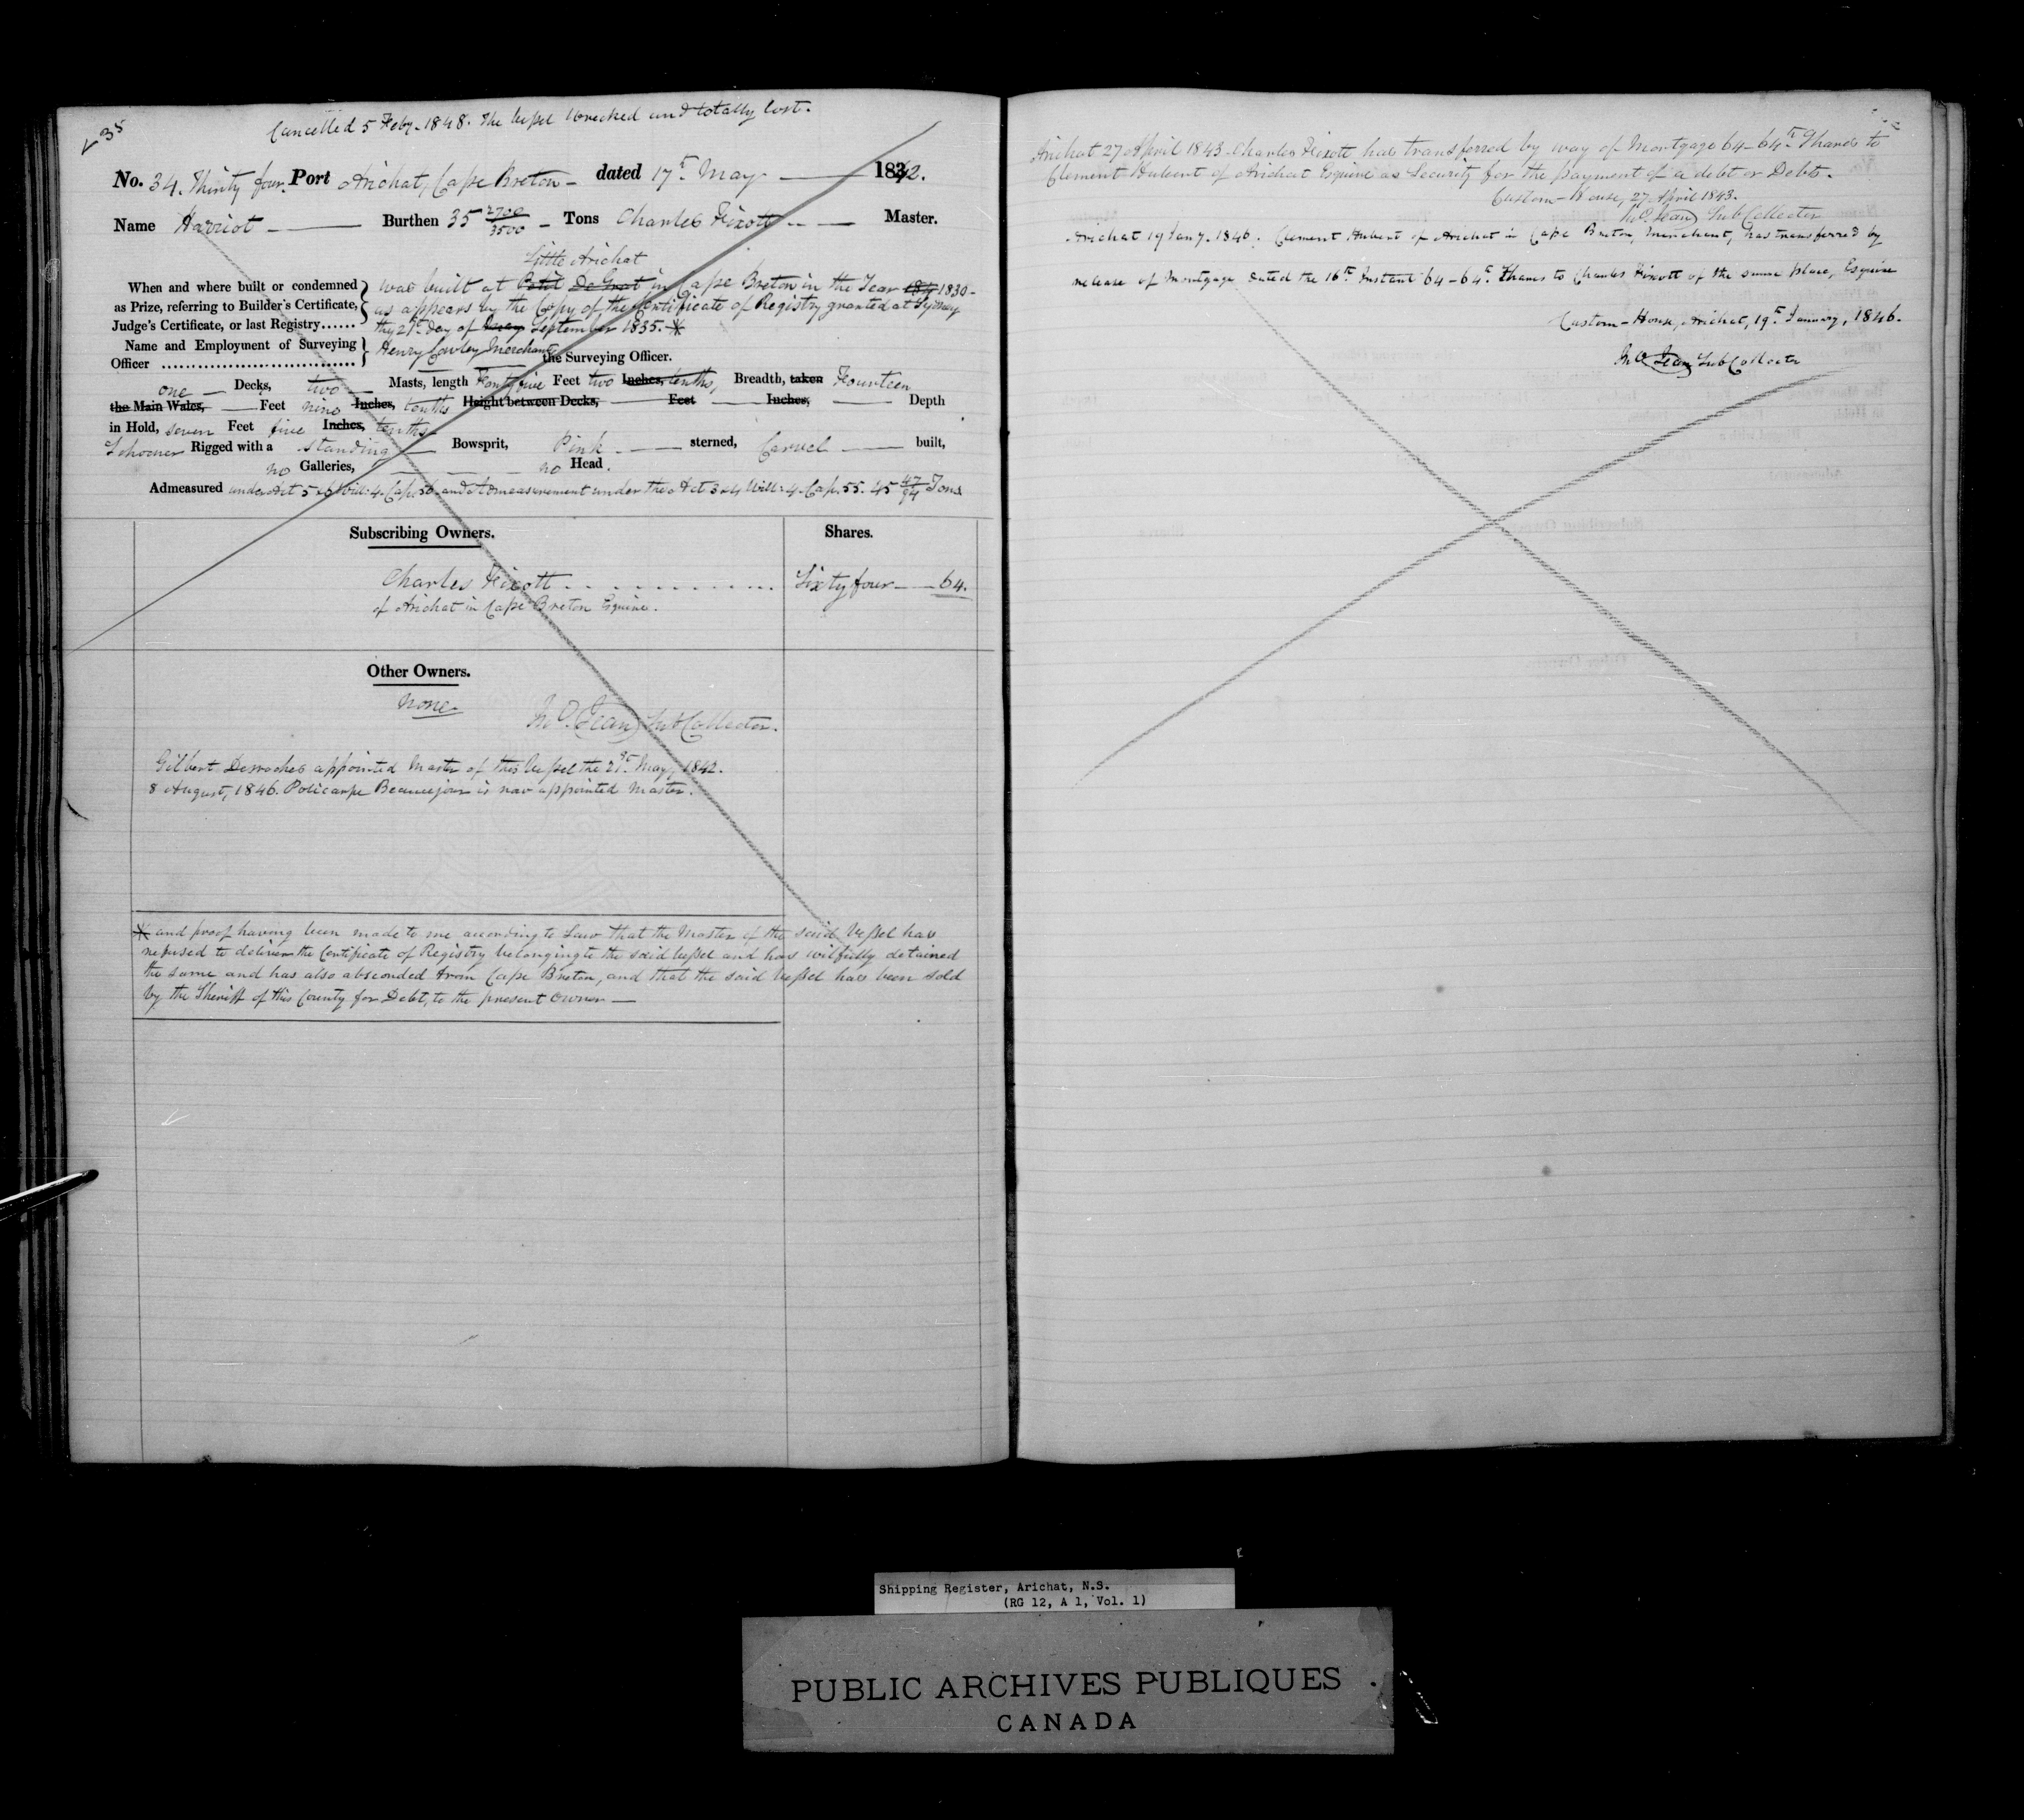 35
Cancelled 5 Feby. 1848. The Vessel Wrecked and totally lost.
No. 34. Thirty four. Port Arichat, Cape Breton - dated 17th May 1842.
Name Harriot Burthen 35 2700/3500 Tons Charles Fixott Master.
Little Arichat
When and where built or condemned as Prize, referring to Builder's Certificate, Judge's Certificate, or last Registry......
was built at Petit De Grat in Cape Breton in the Year 1830 -
as appears by the Copy of the Certificate of Registry granted at Sydney
the 21st day of September 1835. *
Name and Employment of Surveying Officer
Henry Cowley Merchant the Surveying Officer.
one Decks, two Masts, length Forty five Feet two Inches, tenths, Breadth, taken Fourteen
the Main Wales, Feet nine Inches, tenths Height between Decks, Feet Inches, Depth
in Hold, seven Feet five Inches, tenths
Schooner Rigged with a standing Bowsprit, Pink sterned, Carvel built,
no Galleries, no Head.
Admeasured under Act 5 & 6 Will: 4. Cap. 56. and Admeasurement under the Act 3 & 4 Will: 4. Cap. 55. 45 47/94 Tons
Subscribing Owners. Shares.
Charles Fixott Sixty four 64.
of Arichat in Cape Breton Esquire.
Other Owners.
None
Jno. Jean Sub Collector.
Gilbert Desroches appointed Master of this Vessel the 21st May, 1842.
8 August, 1846. Policarpe Beaucejour is now appointed Master.
* and proof having been made to me according to Law that the Master of the said Vessel has
refused to deliver the Certificate of Registry belonging to the said Vessel and has wilfully detained
the same and has also absconded from Cape Breton, and that the said Vessel has been sold
by the Sheriff of this County for Debt, to the present Owner —
Arichat 27 April 1843. Charles Fixott has transferred by way of Mortgage 64-64th Shares to
Clement Hubert of Arichat Esquire as Security for the payment of a debt or Debts.
Custom-House, 27 April 1843.
Jno. Jean Sub Collector
Arichat 19 Jany. 1846. Clement Hubert of Arichat in Cape Breton, Merchant, has transferred by
release of Mortgage dated the 16th Instant 64-64th Shares to Charles Fixott of the same place, Esquire
Custom-House, Arichat, 19th January, 1846.
Jno. Jean Sub Collector
Shipping Register, Arichat, N.S.
(RG 12, A 1, Vol. 1)
PUBLIC ARCHIVES PUBLIQUES
CANADA